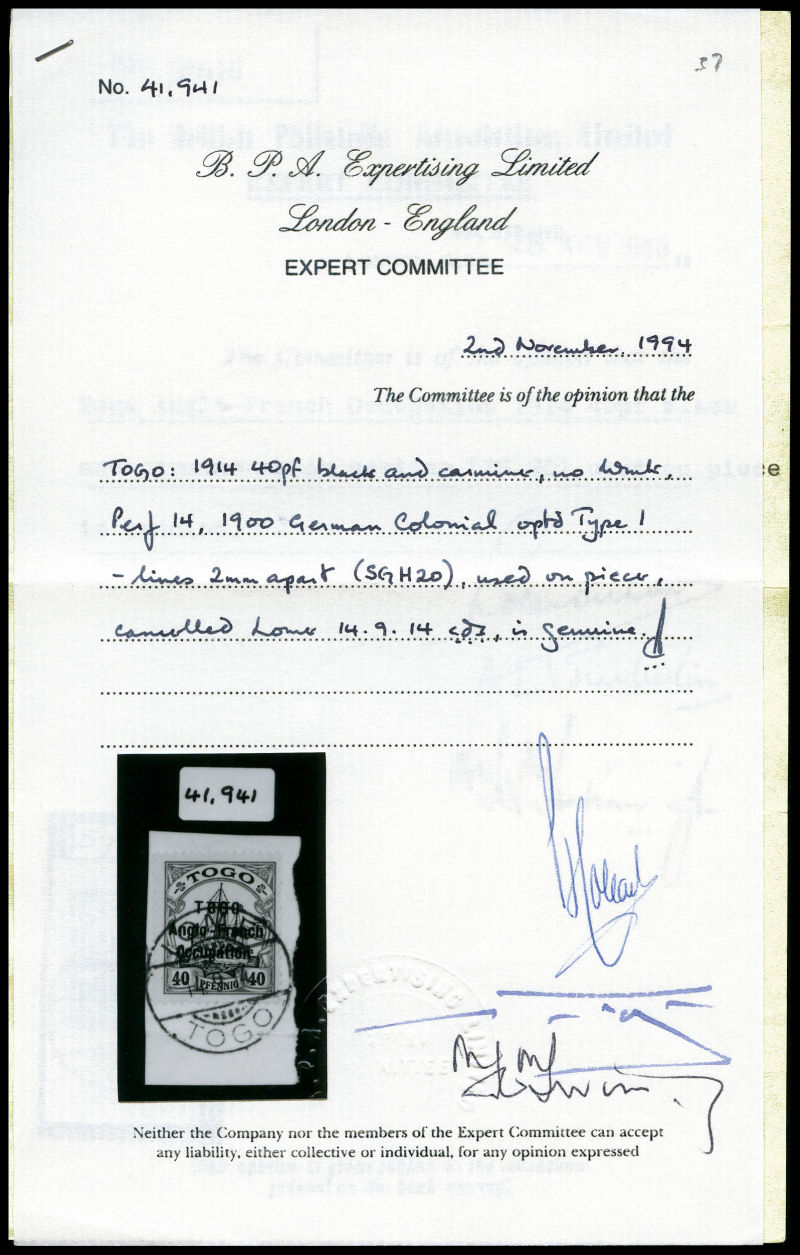 37
No. 41,941
B. P. A. Expertising Limited
London - England
EXPERT COMMITTEE
2nd November 1994
The Committee is of the opinion that the
TOGO: 1914 40pf black and carmine, no wmk,
Perf 14, 1900 German Colonial optd Type 1
- lines 2mm apart (SG H20), used on piece,
cancelled Lome 14.9.14 cds, is genuine.
41,941
TOGO
TOGO
Anglo-French
Occupation
40 PFENNIG 40
TOGO
Neither the Company nor the members of the Expert Committee can accept
any liability, either collective or individual, for any opinion expressed